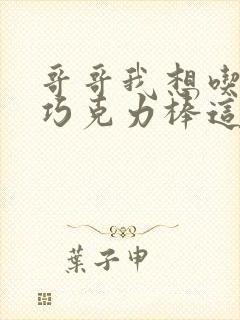 哥哥我想喫
巧克力棒這
葉子申